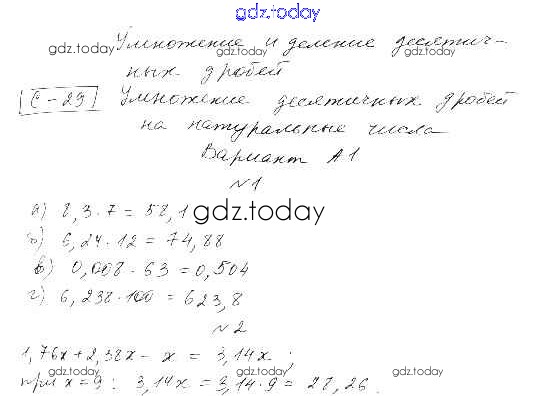 gdz.today
Умножение и деление десятич-
gdz.today gdz.today gdz.today
ных дробей
С-29 Умножение десятичных дробей
gdz.today на натуральные числа gdz.today
Вариант А1
№1
а) 8,3·7=58,1
gdz.today
б) 6,24·12=74,88
в) 0,008·63=0,504
г) 6,238·100=623,8
№2
1,76x+2,38x-x=3,14x;
при x=9: 3,14x=3,14·9=28,26.
gdz.today gdz.today gdz.today